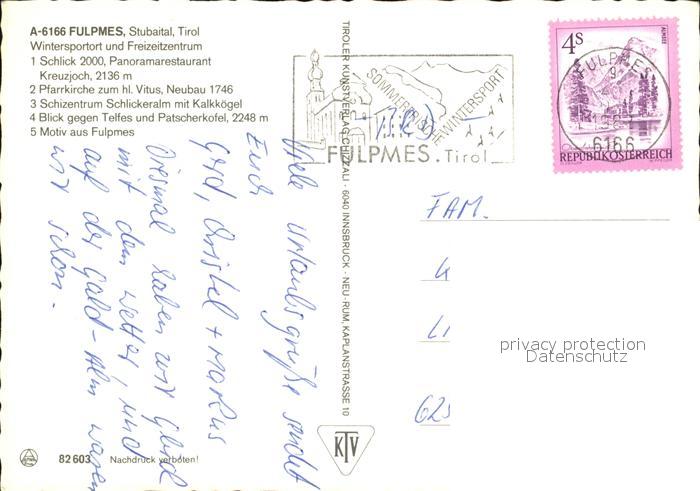 A-6166 FULPMES, Stubaital, Tirol
Wintersportort und Freizeitzentrum
1 Schlick 2000, Panoramarestaurant
Kreuzjoch, 2136 m
2 Pfarrkirche zum hl. Vitus, Neubau 1746
3 Schizentrum Schlickeralm mit Kalkkögel
4 Blick gegen Telfes und Patscherkofel, 2248 m
5 Motiv aus Fulpmes
Viele Urlaubsgrüße sendet
Euch
Gerd, Christel + Markus
Diesmal haben wir Glück
mit dem Wetter, und
auf der Gald-Alm waren
wir schon.
82 603 Nachdruck verboten!
TIROLER KUNSTVERLAG CHIZZALI · 6040 INNSBRUCK - NEU-RUM, KAPLANSTRASSE 10
KTV
SOMMERFRISCHE
WINTERSPORT
FULPMES. Tirol
4S
ALMSEE
REPUBLIK ÖSTERREICH
FULPMES
6166
FAM.
625
privacy protection
Datenschutz